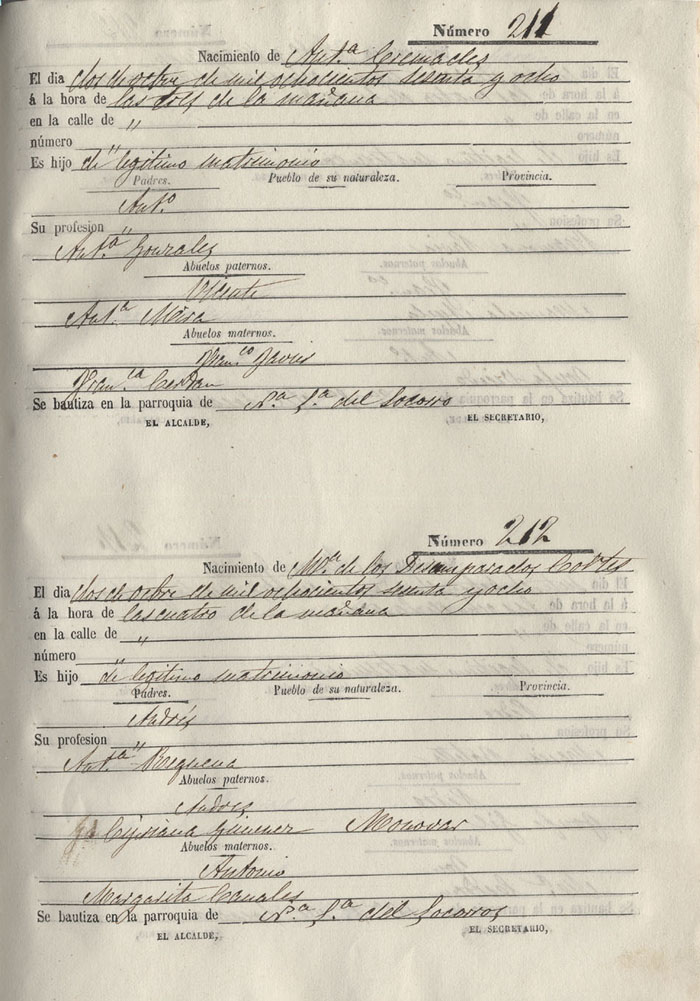 Número 211
Nacimiento de Ant.ª Cremades
El dia dos de octbre de mil ochocientos sesenta y ocho
á la hora de las dos de la mañana
en la calle de "
número "
Es hijo de legitimo matrimonio
Padres. Pueblo de su naturaleza. Provincia.
Ant.º
Su profesion "
Ant.ª Gonzales
Abuelos paternos.
Vicente
Ant.ª Mira
Abuelos maternos.
Fran.co
Fran.ca
Se bautiza en la parroquia de N.ª S.ª del Socorro
EL ALCALDE, EL SECRETARIO,
Número 212
Nacimiento de M.ª de los Desamparados Cortes
El dia dos de octbre de mil ochocientos sesenta y ocho
á la hora de las cuatro de la mañana
en la calle de "
número "
Es hijo de legitimo matrimonio
Padres. Pueblo de su naturaleza. Provincia.
Andrés
Su profesion "
Ant.ª Requena
Abuelos paternos.
Andres
Cipriana Gimenez Monovar
Abuelos maternos.
Antonio
Margarita Canales
Se bautiza en la parroquia de N.ª S.ª del Socorros
EL ALCALDE, EL SECRETARIO,